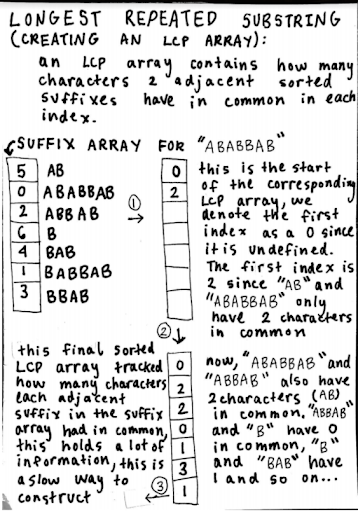 LONGEST REPEATED SUBSTRING
(CREATING AN LCP ARRAY):
an LCP array contains how many
characters 2 adjacent sorted
suffixes have in common in each
index.
SUFFIX ARRAY FOR "ABABBAB"
5 AB
0 ABABBAB
2 ABBAB
6 B
4 BAB
1 BABBAB
3 BBAB
①
0
2
this is the start
of the corresponding
LCP array, we
denote the first
index as a 0 since
it is undefined.
The first index is
2 since "AB" and
"ABABBAB" only
have 2 characters
in common
②
this final sorted
LCP array tracked
how many characters
each adjacent
suffix in the suffix
array had in common,
this holds a lot of
information, this is
a slow way to
construct
③
0
2
2
0
1
3
1
now, "ABABBAB" and
"ABBAB" also have
2 characters (AB)
in common. "ABBAB"
and "B" have 0
in common, "B"
and "BAB" have
1 and so on...